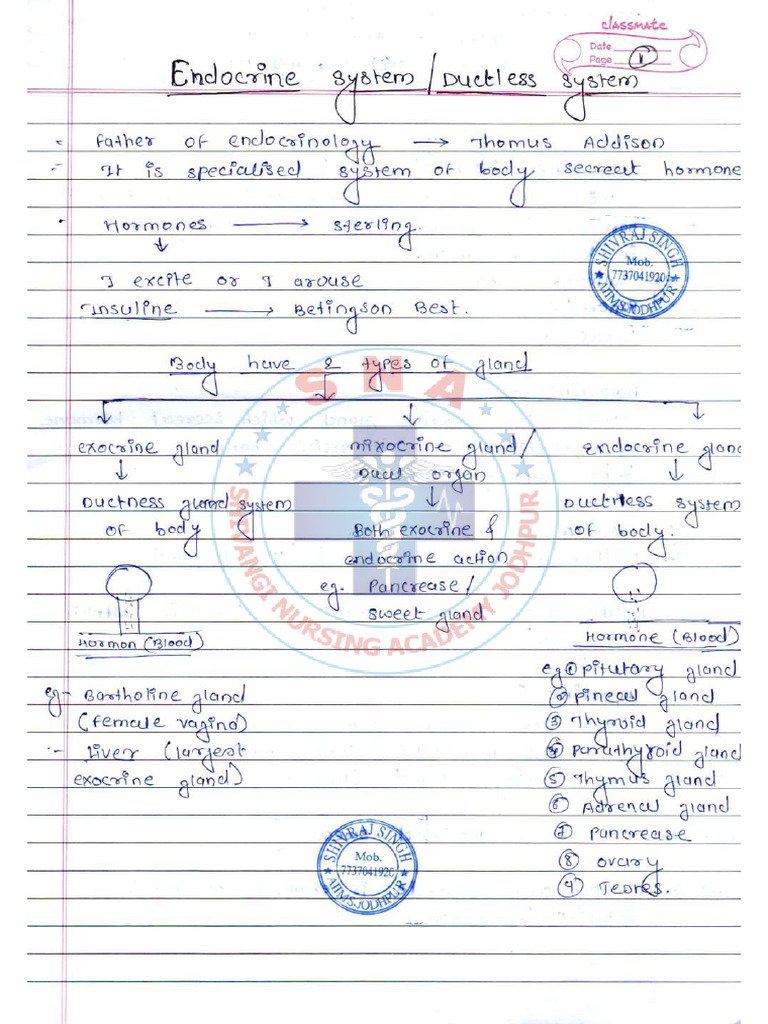 classmate
Date
Page 1
Endocrine system / Ductless system
- Father of endocrinology → Thomus Addison
- It is specialised system of body secreat hormone
• Hormones → Sterling.
↓
I excite or I arouse
Insuline → Betingson Best.
Body have 2 types of gland
SNA
exocrine gland
↓
Ductness gland system
of body
Hormon (Blood)
eg- Bartholine gland
(female vagina)
:- Liver (largest
exocrine gland)
mixocrine gland/
Dual organ
↓
Both exocrine &
endocrine action
eg. Pancrease/
sweet gland
Endocrine gland
↓
Ductless system
of body.
Hormone (Blood)
eg ① pitutary gland
② pineal gland
③ Thyroid gland
④ parathyroid gland
⑤ Thymus gland
⑥ Adrenal gland
⑦ pancrease
⑧ ovary
⑨ Testes.
SHIVANGI NURSING ACADEMY JODHPUR
SHIVRAJ SINGH
Mob.
7737041920
AIIMSJODHPUR
SHIVRAJ SINGH
Mob.
7737041920
AIIMSJODHPUR